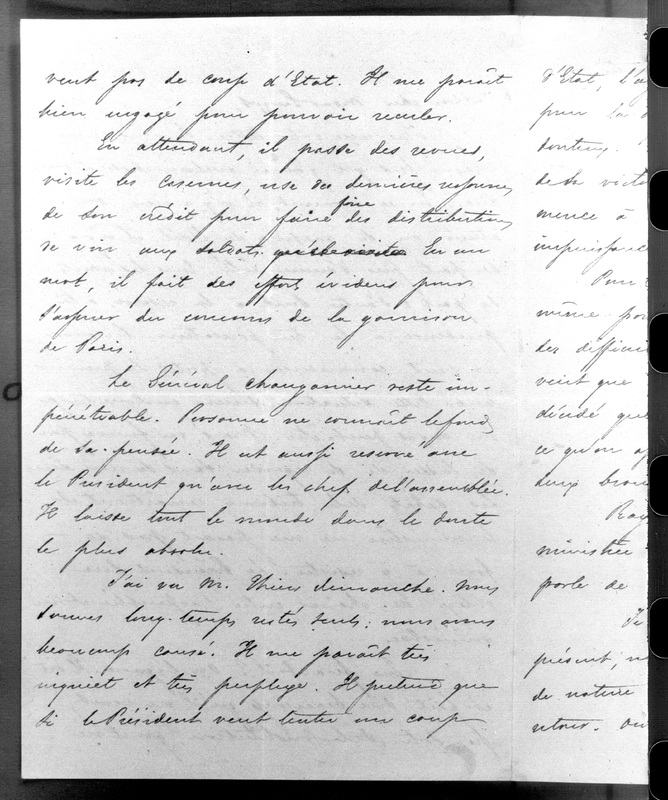 veut pas de coup d'Etat. Il me paraît
bien engagé pour pouvoir reculer.
En attendant, il passe des revues,
visite les casernes, use des dernières ressources
de son crédit pour faire faire des distributions
de vin aux soldats. En un
mot, il fait des efforts évidens pour
s'assurer du concours de la garnison
de Paris.
Le Général Changarnier reste im-
pénétrable. Personne ne connaît le fond
de sa pensée. Il est aussi reservé avec
le Président qu'avec les chefs de l'assemblée.
Il laisse tout le monde dans le doute
le plus absolu.
J'ai vu M. Thiers dimanche. Nous
sommes long-temps restés seuls; nous avons
beaucoup causé. Il me paraît très
inquiet et très perplexe. Il prétend que
si le Président veut tenter un coup
d'Etat, l'a
pour la
douteux.
de sa victo
mence à
impuissance
Pour
même pou
des difficu
veut que
décidé que
ce qu'on a
deux
ministère
porte de
Je
présent, n
de notre